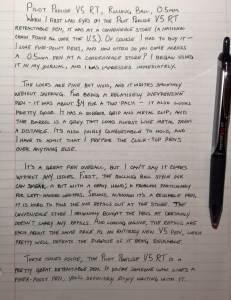 PILOT PRECISE V5 RT, ROLLING BALL, 0.5mm
WHEN I FIRST LAID EYES ON THE PILOT PRECISE V5 RT
RETRACTABLE PEN, IT WAS AT A CONVENIENCE STORE (A NATIONAL
CHAIN FOUND ALL OVER THE U.S.). OF COURSE I HAD TO BUY IT –
I LOVE FINE-POINT PENS, AND HOW OFTEN DO YOU COME ACROSS
A 0.5mm PEN AT A CONVENIENCE STORE? I BEGAN USING
IT IN MY JOURNAL, AND I WAS IMPRESSED IMMEDIATELY.
THE LINES ARE FINE BUT VIVID, AND IT WRITES SMOOTHLY
WITHOUT SKIPPING. FOR BEING A RELATIVELY INEXPENSIVE
PEN – IT WAS ABOUT $4 FOR A TWO PACK – IT ALSO LOOKS
PRETTY GOOD. IT HAS A RUBBER GRIP AND METAL CLIP, AND
THE BARREL IS A GREY THAT LOOKS ALMOST LIKE METAL FROM
A DISTANCE. IT'S ALSO FAIRLY COMFORTABLE TO HOLD, AND
I HAVE TO ADMIT THAT I PREFER THE CLICK-TOP PENS
OVER ANYTHING ELSE.
IT'S A GREAT PEN OVERALL, BUT I CAN'T SAY IT COMES
WITHOUT ANY ISSUES. FIRST, THE ROLLING BALL STYLE INK
CAN SMEAR A BIT WITH A HEAVY HAND; A PROBLEM PARTICULARLY
FOR LEFT-HANDED WRITERS. SECOND, ALTHOUGH IT'S A REUSABLE PEN,
IT IS HARD TO FIND THE INK REFILLS OUT AT THE STORE. THE
CONVENIENCE STORE I ORIGINALLY BOUGHT THE PENS AT CERTAINLY
DOESN'T CARRY ANY REFILLS. AND LOOKING ONLINE, THE REFILLS ARE
EACH ABOUT THE SAME PRICE AS AN ENTIRELY NEW V5 PEN, WHICH
PRETTY WELL DEFEATS THE PURPOSE OF IT BEING REUSABLE.
THESE ISSUES ASIDE, THE PILOT PRECISE V5 RT IS A
PRETTY GREAT RETRACTABLE PEN. IF YOU'RE SOMEONE WHO LIKES A
FINER-POINT PEN, YOU'LL DEFINITELY ENJOY WRITING WITH IT.